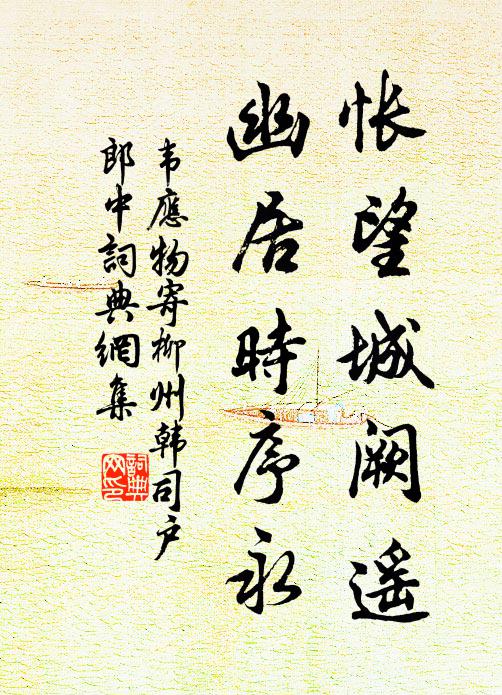 怅望城阙遥
幽居時序永
韦應物寄柳州韩司户
郎中詞典網集
詞典
网印